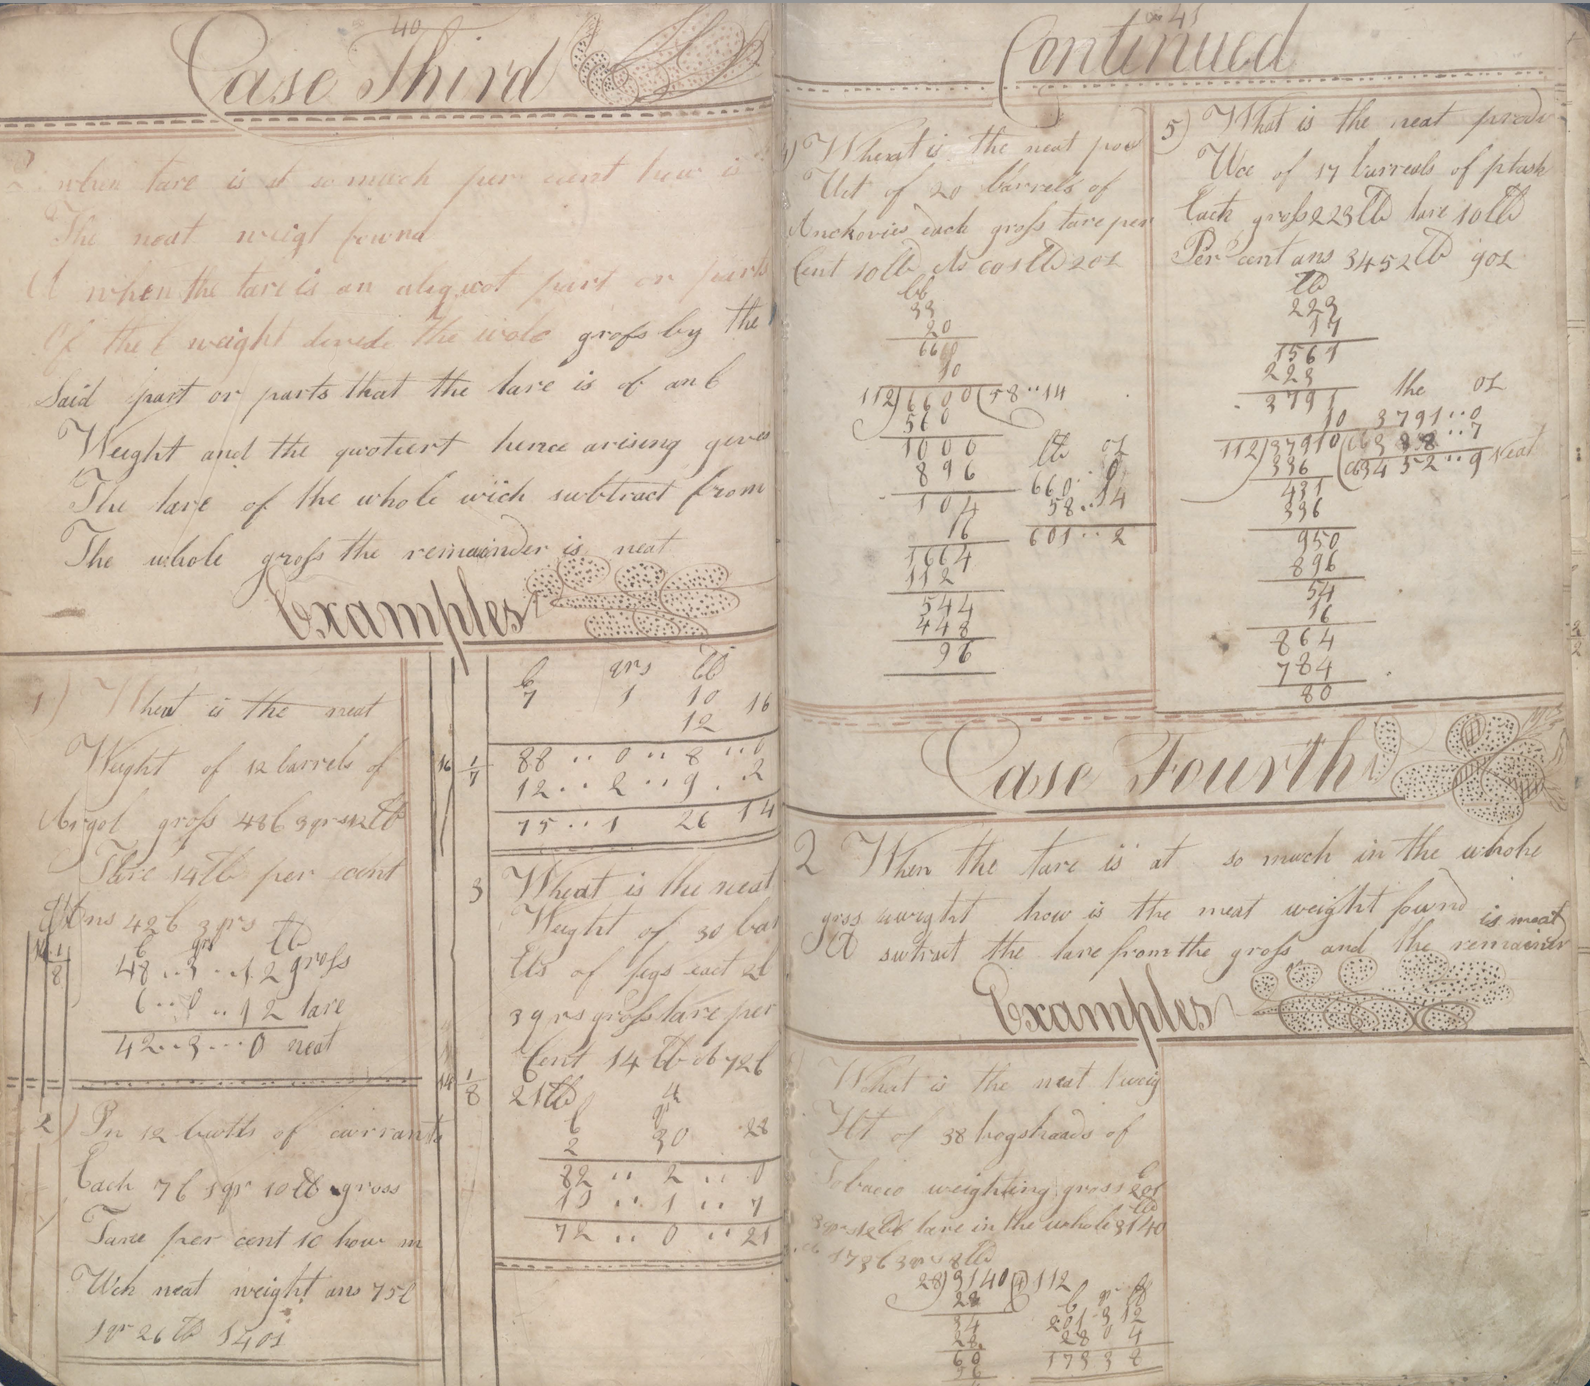 40
Case Third
when tare is at so much per cent how is
The neat weigt fownd
A when the tare is an aliquot part or parts
Of the C weight devide the wole gross by the
Said part or parts that the tare is of an C
Weight and the quotiert hence arising gives
The tare of the whole wich subtract from
The whole gross the remainder is neat
Examples
1) What is the neat
Weight of 12 barrels of
Argol gross 48C 3qrs 12lb
Tare 14lb per cent
Ans 42C 3qrs
C qr lb
14 1/8
48 .. 3 .. 12 gross
6 .. 0 .. 12 tare
42 .. 3 .. 0 neat
2) In 12 butts of currants
Each 7C 1qr 10lb gross
Tare per cent 16 how m
Uch neat weight ans 75C
1qr 26lb 14oz
C qrs lb
7 1 10 16
12
16 1/7
88 .. 0 .. 8 .. 0
12 .. 2 .. 9 .. 2
75 .. 1 26 14
3 What is the neat
Weight of 30 bar
Els of figs eact 2C
3qrs gross tare per
Cent 14lb 72C
14 1/8
21lb
C qr
2 30 28
82 .. 2 .. 0
10 .. 1 .. 7
72 .. 0 .. 21
41
Continued
4) What is the neat pow
Uct of 20 barrels of
Anchovies each gross tare per
Cent 10lb As 601lb 2oz
lb
33
20
660
10
112)6600(58..14
560
1000
896
104
16
1664
112
544
448
96
lb oz
660 .. 0
58 .. 14
601 .. 2
5) What is the neat prod
Uce of 17 burreals of plash
Each gross 223lb tare 10lb
Per cent ans 3452lb 9oz
lb
223
17
1561
223
3791
10
112)37910(
336
431
336
950
896
54
16
864
784
80
the oz
3791 .. 0
338 .. 7
3452 .. 9 Neat
Case Fourth
2 When the tare is at so much in the whole
gross weight how is the neat weight fownd
A subtract the tare from the gross and the remainder
is neat
Examples
What is the neat weig
Ht of 38 hogsheads of
Tobacco weighting gross 201C
3qrs 12lb tare in the whole 3140 lb
173C 3qrs 8lb
28)3140(112
28
34
28
60
56
C qr lb
201 3 12
28 0 4
173 3 8